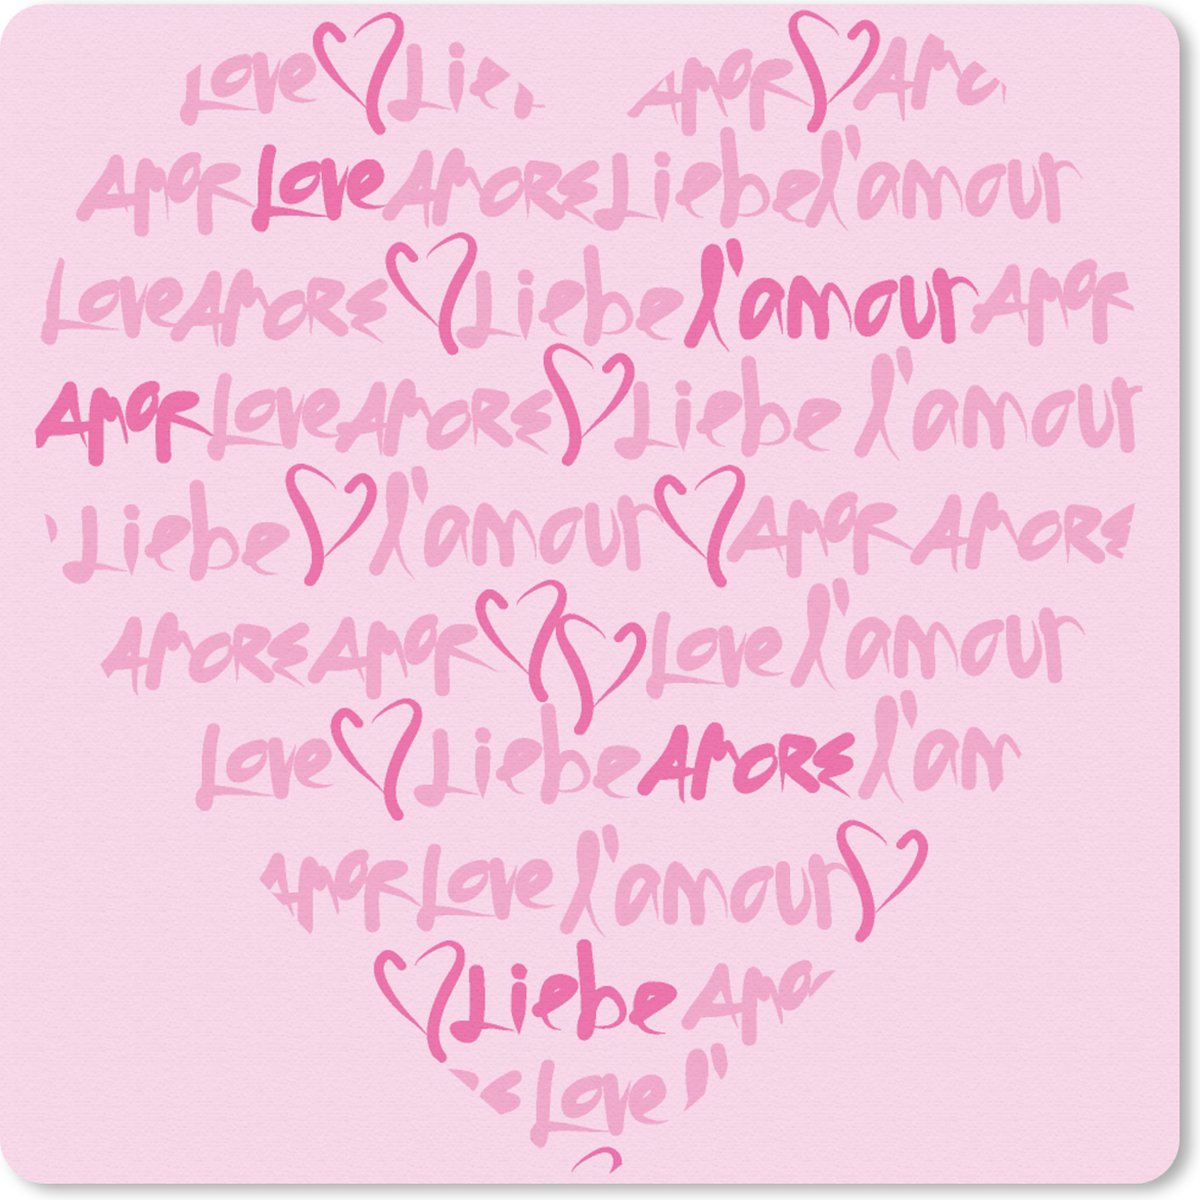 Love Lie
AMOR AMO
AMOR Love AMORE Liebe l'amour
Love AMORE Liebe l'amour AMOR
AMOR Love AMORE Liebe l'amour
Liebe l'amour AMOR AMORE
AMORE AMOR Love l'amour
Love Liebe AMORE l'am
AMOR Love l'amour
Liebe AMO
Love l'